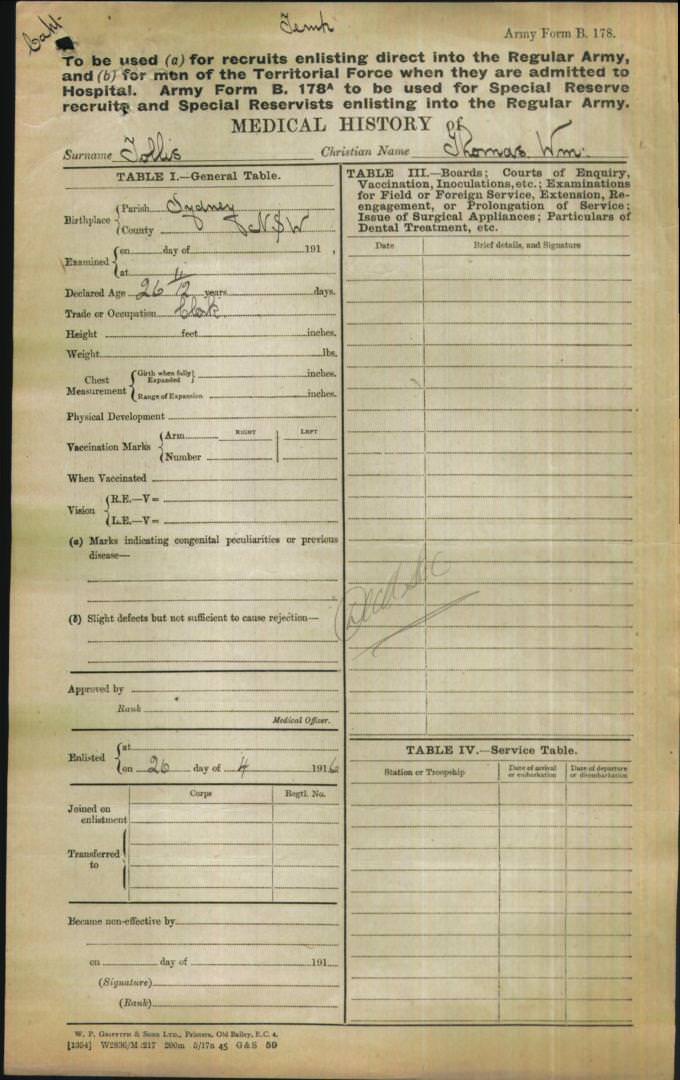 Temp
Army Form B. 178.
To be used (a) for recruits enlisting direct into the Regular Army,
and (b) for men of the Territorial Force when they are admitted to
Hospital. Army Form B. 178A to be used for Special Reserve
recruits and Special Reservists enlisting into the Regular Army.
MEDICAL HISTORY of
Surname Tollis Christian Name Thomas Wm.
TABLE I.—General Table.
Birthplace { Parish Sydney
County NSW
Examined { on day of 191 ,
at
Declared Age 26 11/12 years days.
Trade or Occupation Clerk
Height feet inches.
Weight lbs.
Chest Measurement { Girth when fully Expanded } inches.
Range of Expansion inches.
Physical Development
Vaccination Marks { Arm RIGHT LEFT
Number
When Vaccinated
Vision { R.E.—V=
L.E.—V=
(a) Marks indicating congenital peculiarities or previous
disease—
(b) Slight defects but not sufficient to cause rejection—
Approved by
Rank
Medical Officer.
Enlisted { at
on 26 day of 4 1916
Corps Regtl. No.
Joined on
enlistment
Transferred
to
Became non-effective by
on day of 191
(Signature)
(Rank)
TABLE III.—Boards; Courts of Enquiry,
Vaccination, Inoculations, etc.; Examinations
for Field or Foreign Service, Extension, Re-
engagement, or Prolongation of Service;
Issue of Surgical Appliances; Particulars of
Dental Treatment, etc.
Date Brief details, and Signature
TABLE IV.—Service Table.
Station or Troopship Date of arrival or embarkation Date of departure or disembarkation
W. P. Griffith & Sons Ltd., Printers, Old Bailey, E.C. 4.
[1354] W2836/M 1217 200m 5/17a 45 G & S 59